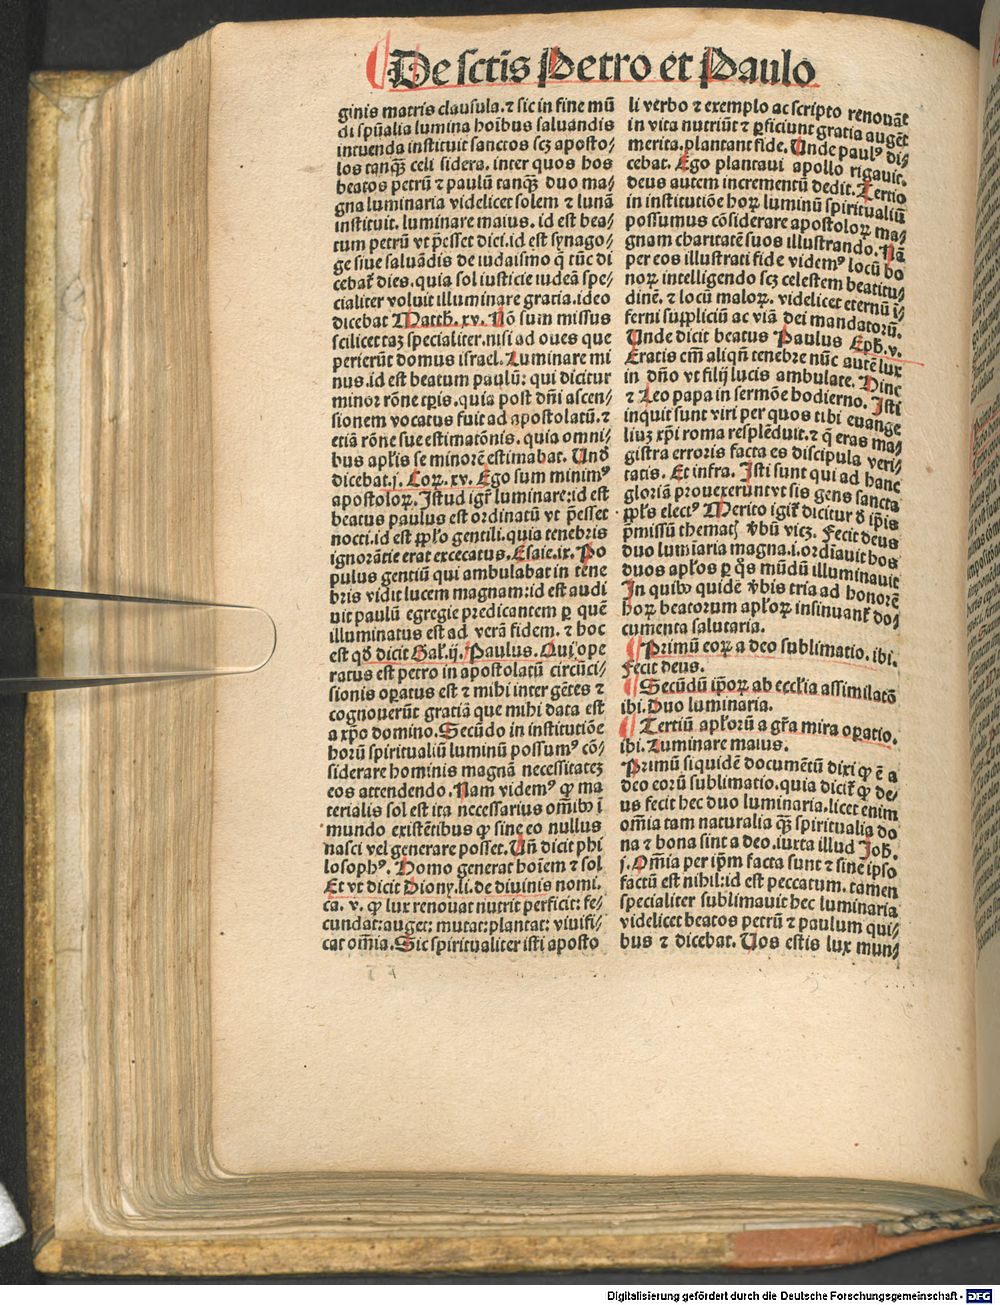 De sctis Petro et Paulo
ginis matris clausula. ⁊ sic in fine mū
di spūalia lumina hoībus saluandis
intuenda instituit sanctos scꝫ aposto/
los tanqꝫ celi sidera. inter quos hos
beatos petrū ⁊ paulū tanqꝫ duo ma/
gna luminaria videlicet solem ⁊ lunā
instituit. luminare maius. id est bea/
tum petrū vt p̄esset diei. id est synago/
ge siue saluādis de iudaismo q̄ tūc di
cebat̄ dies. quia sol iusticie iudeā spe/
cialiter voluit illuminare gratia. ideo
dicebat Matth. xv. Nō sum missus
scilicet taꝫ specialiter. nisi ad oues que
perierūt domus israel. Luminare mi
nus. id est beatum paulū: qui dicitur
minor rōne tꝑis. quia post dñi ascen/
sionem vocatus fuit ad apostolatū. ⁊
etiā rōne sue estimatōnis. quia omni/
bus apl̄is se minorē estimabat. Vnd̄
dicebat. j. Coꝝ. xv. Ego sum minimꝰ
apostoloꝝ. Istud igr̄ luminare: id est
beatus paulus est ordinatū vt p̄esset
nocti. id est ppl̄o gentili. quia tenebris
ignorātie erat excecatus. Esaie. ix. Po
pulus gentiū qui ambulabat in tene
bris vidit lucem magnam: id est audi
uit paulū egregie predicantem ꝑ quē
illuminatus est ad verā fidem. ⁊ hoc
est qd̄ dicit Gal̄. ij. Paulus. Qui ope
ratus est petro in apostolatū circūci/
sionis oꝑatus est ⁊ mihi inter gētes ⁊
cognouerūt gratiā que mihi data est
a xp̄o domino. Secūdo in institutiōe
horū spiritualiū luminū possumꝰ cō/
siderare hominis magnā necessitateꝫ
eos attendendo. Nam videmꝰ ꝙ ma
terialis sol est ita necessarius om̄ibꝰ ī
mundo existētibus ꝙ sine eo nullus
nasci vel generare posset. Vn̄ dicit phi
losophꝰ. Homo generat hoīem ⁊ sol
Et vt dicit Diony. li. de diuinis nomi.
ca. v. ꝙ lux renouat nutrit perficit: fe/
cundat: auget: mutat: plantat: viuifi/
cat om̄ia. Sic spiritualiter isti aposto
li verbo ⁊ exemplo ac scripto renouāt
in vita nutriūt ⁊ ꝑficiunt gratia augēt
merita. plantant fidē. Vnde paulꝰ di/
cebat. Ego plantaui apollo rigauit.
deus autem incrementū dedit. Tertio
in institutiōe hoꝝ luminū spiritualiū
possumus cōsiderare apostoloꝝ ma/
gnam charitatē suos illustrando. Nā
per eos illustrati fide videmꝰ locū bo
noꝝ intelligendo scꝫ celestem beatitu/
dinē. ⁊ locū maloꝝ. videlicet eternū ī/
ferni suppliciū ac viā dei mandatorū.
Unde dicit beatus Paulus Eph. v.
Eratis em̄ aliqn̄ tenebre nūc autē lux
in dn̄o vt filij lucis ambulate. Hinc
⁊ Leo papa in sermōe hodierno. Isti
inquit sunt viri per quos tibi euange
liuꝫ xp̄i roma resplēduit. ⁊ q̄ eras ma/
gistra erroris facta es discipula veri/
tatis. Et infra. Isti sunt qui ad hanc
gloriā prouexerunt vt sis gens sancta
ppl̄s electꝰ Merito igit̄ dicitur d̄ ip̄is
p̄missū thematꝭ v̄bū vicꝫ. Fecit deus
duo lumīaria magna. i. ordīauit hos
duos apl̄os ꝑ q̄s mūdū illuminauit
In quibꝰ quidē v̄bis tria ad honorē
hoꝝ beatorum apl̄oꝝ insinuant̄ do/
cumenta salutaria.
¶ Primū eoꝝ a deo sublimatio. ibi.
Fecit deus.
¶ Secūdū ip̄oꝝ ab eccl̄ia assimilatō
ibi. Duo luminaria.
¶ Tertiū apl̄orū a gr̄a mira oꝑatio.
ibi. Luminare maius.
Primū siquidē documētū dixi ꝙ ē a
deo eorū sublimatio. quia dicit̄ ꝙ de/
us fecit hec duo luminaria. licet enim
om̄ia tam naturalia qꝫ spiritualia do
na ⁊ bona sint a deo. iuxta illud Joh.
j. Om̄ia per ip̄m facta sunt ⁊ sine ipso
factū est nihil: id est peccatum. tamen
specialiter sublimauit hec luminaria
videlicet beatos petrū ⁊ paulum qui/
bus ⁊ dicebat. Vos estis lux mun/
Digitalisierung gefördert durch die Deutsche Forschungsgemeinschaft - DFG